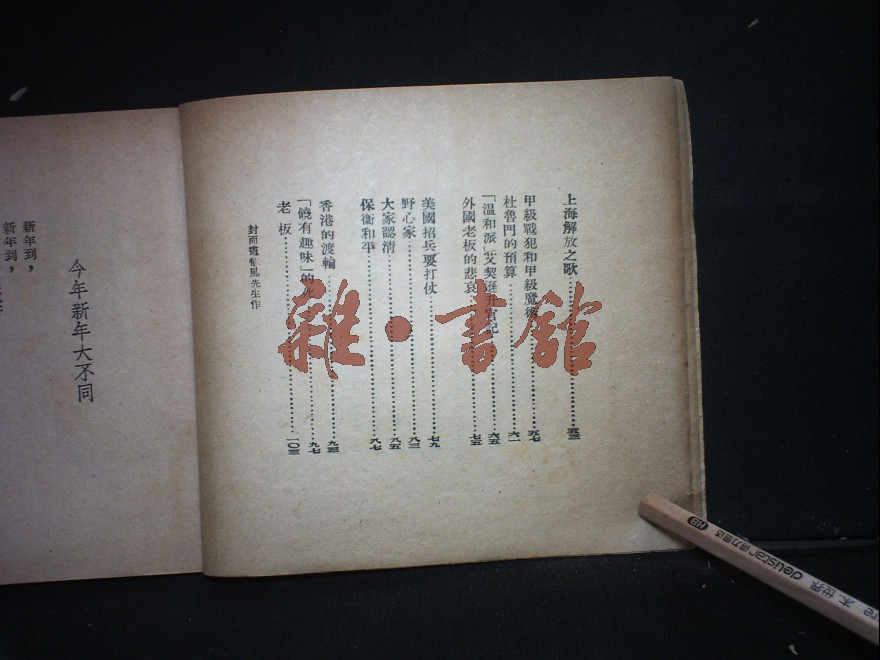 上海解放之歌……五三
甲級戰犯和甲級魔術……五七
杜魯門的預算……六一
「溫和派」艾契遜升官記……六五
外國老板的悲哀……七五
美國招兵要打仗……七九
野心家……八三
大家認清……八五
保衛和平……八七
香港的渡輪……九三
「饒有趣味」的……九七
老板……一〇三
封面 先生作
今年新年大不同
新年到，
新年到，
雜·書館
HB
木世界